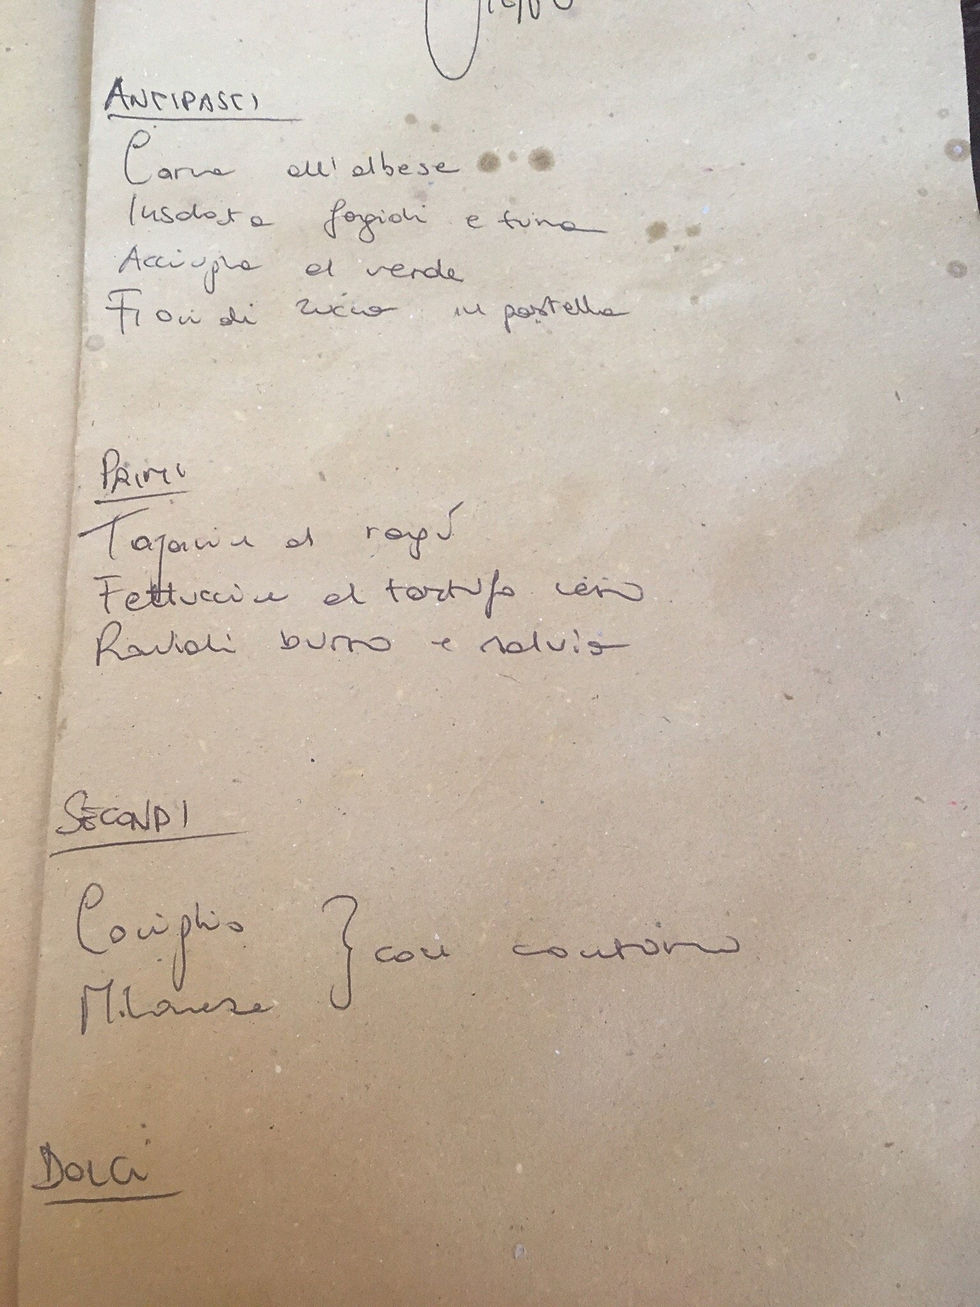 ANTIPASTI
Carne all'albese
Insalata fagioli e tuna
Acciughe al verde
Fiori di zucca in pastella
PRIMI
Tajarin al ragú
Fettuccine al tartufo nero
Ravioli burro e salvia
SECONDI
Coniglio
Milanese
} con contorno
DOLCI